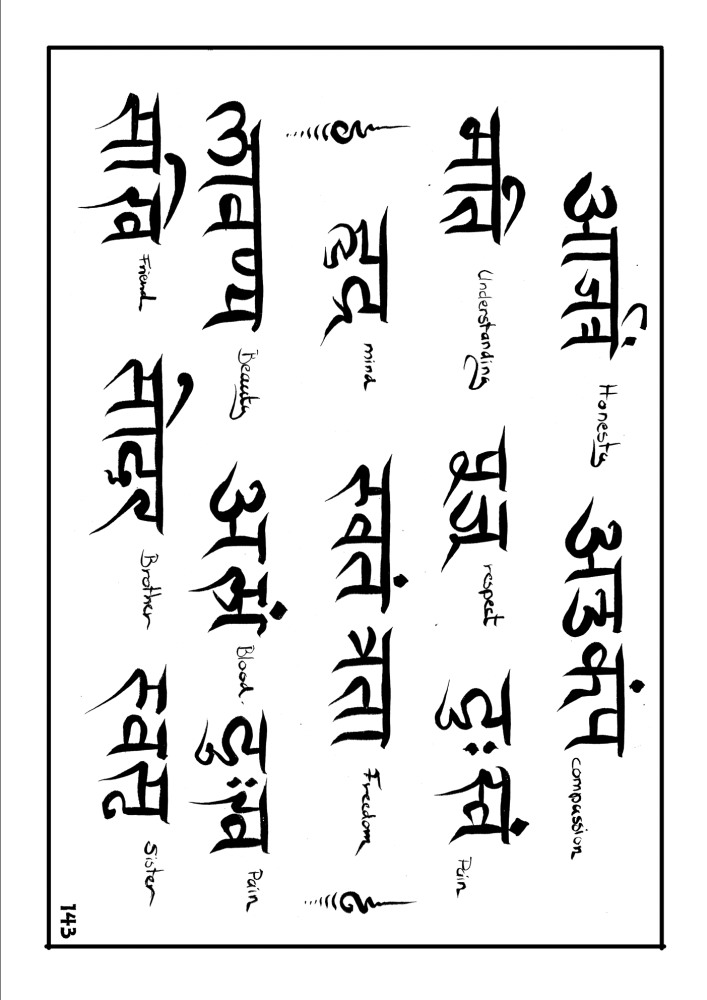 आजर्वं Honesty अउकंप compassion
मति Understanding पुज respect दुःखं Pain
हृद mind स्वतं त्रता Freedom
लावण्य Beauty Blood दुःख Pain
सखि Friend सोदर Brother स्वसृ Sister
143